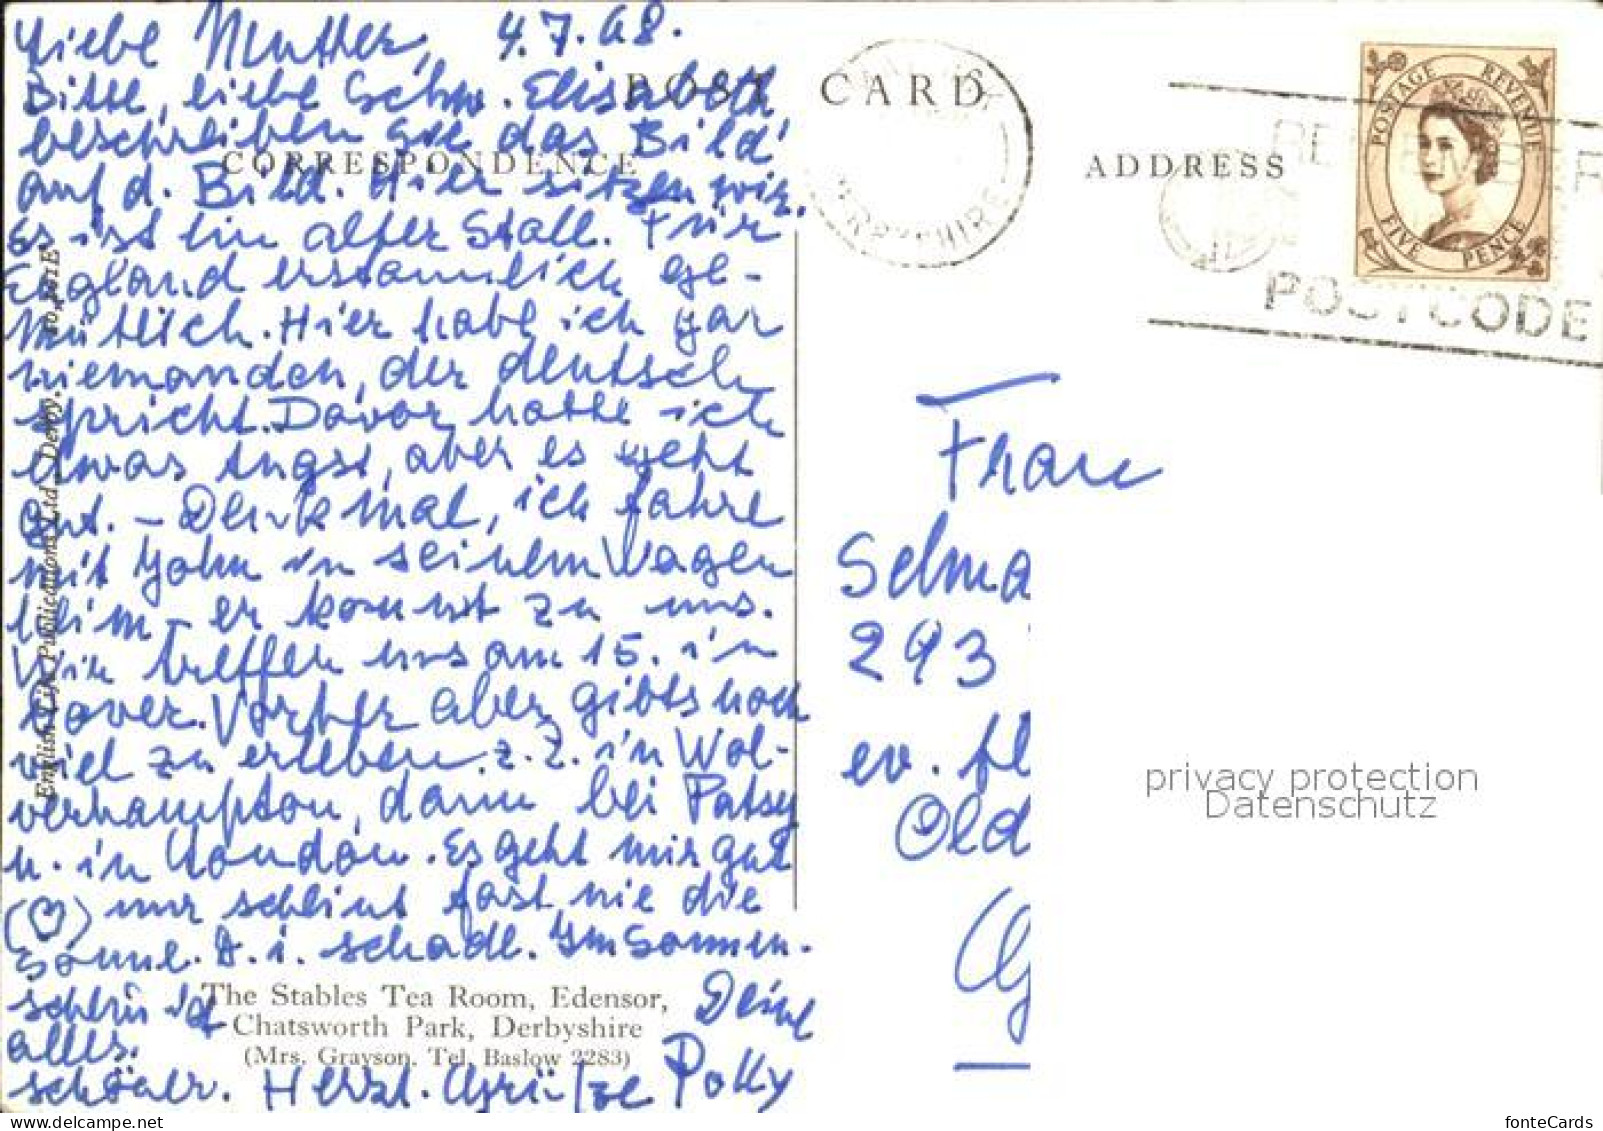 Liebe Mutter, 4.7.68.
Bitte, liebe Schw. Elisabeth
beschreiben Sie das Bild
auf d. Bild. Hier sitzen wir.
Es ist ein alter Stall. Für
England erstaunlich ge-
mütlich. Hier habe ich gar
niemanden, der deutsch
spricht. Davor hatte ich
etwas Angst, aber es geht
gut. – Denk mal, ich fahre
mit John in seinem Wagen
heim – er kommt zu uns.
Wir treffen uns am 15. in
Dover. Vorher aber gibts noch
viel zu erleben. z. B. in Wol-
verhampton, dann bei Patsy
u. in London. Es geht mir gut
(♡) nur scheint fast nie die
Sonne. D. i. schade. Im Sonnen-
schein ist
alles
schöner. Herzl. Grüße
Deine
Polly
POST CARD
CORRESPONDENCE
ADDRESS
English Life Publications Ltd. Derby.
The Stables Tea Room, Edensor,
Chatsworth Park, Derbyshire
(Mrs. Grayson. Tel. Baslow 2283)
DERBYSHIRE
POSTAGE REVENUE
FIVE PENCE
POSTCODE
Frau
Selma
293
ev.
Old
privacy protection
Datenschutz
fonteCards